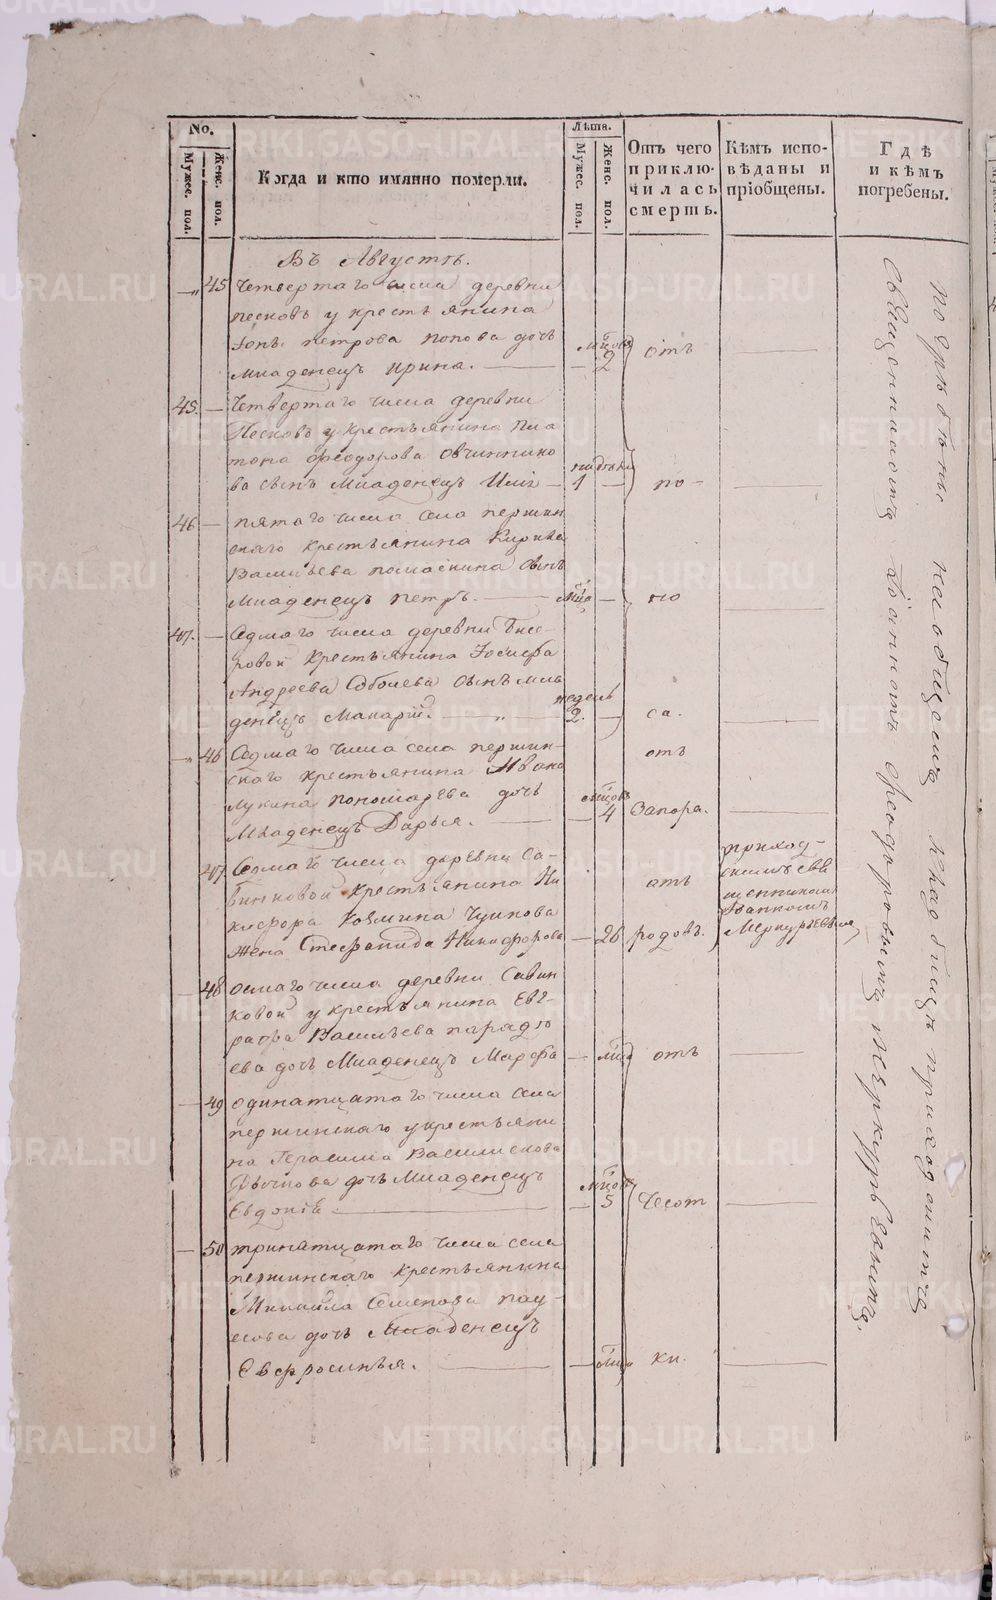 No.
Мужес. пол.
Женс. пол.
Когда и кто имянно померли.
Лѣта.
Мужес. пол.
Женс. пол.
Отъ чего
приклю-
чилась
смерть.
Кѣмъ испо-
вѣданы и
пріобщены.
Гдѣ
и кѣмъ
погребены.
Въ Августѣ.
45 Четвертаго числа деревни
песковъ у крестьянина
петрова попова дочь
Младенецъ Ирина. мцовъ 2 отъ
45. Четвертаго числа деревни
Песковъ у крестьянина Пла
тона Феодорова Овчиннико
ва сынъ Младенецъ 1 по-
46 пятаго числа села першин
скаго крестьянина Кирила
Васильева сынъ
Младенецъ петръ. мца но
47. Седмаго числа деревни Бисе-
ровой крестьянина Іосифа
Андреева Соболева сынъ мла
денецъ Макарій. недель 2. са.
46 Седмаго числа села першин-
скаго крестьянина Ивана
Лукина пономарева дочь
Младенецъ Дарья. мцовъ 4 отъ Запора.
47 Седмаго числа деревни Са-
винковой крестьянина Ни
кифора Козмина Чупкова
жена Стефанида Никифорова 26 отъ родовъ.
приход-
скимъ свя
щенникомъ
Меркурьевым
48 осмаго числа деревни Савин
ковой у крестьянина Евг-
рафа Васильева
ева дочь Младенецъ Марфа мца отъ
49 одинатцатаго числа села
першинскаго у крестьяни
на Герасима Василискова
дочь Младенецъ
Евдокія мцовъ 5 Чесот
50 тринатцатаго числа села
першинскаго крестьянина
Михаила Семенова пау-
сова дочь Младенецъ
Евфросинья. мца ки.
погребены на общемъ кладбище приходскимъ
Священникомъ Іоанномъ Феодоровымъ Меркурьевымъ.
METRIKI.GASO-URAL.RU